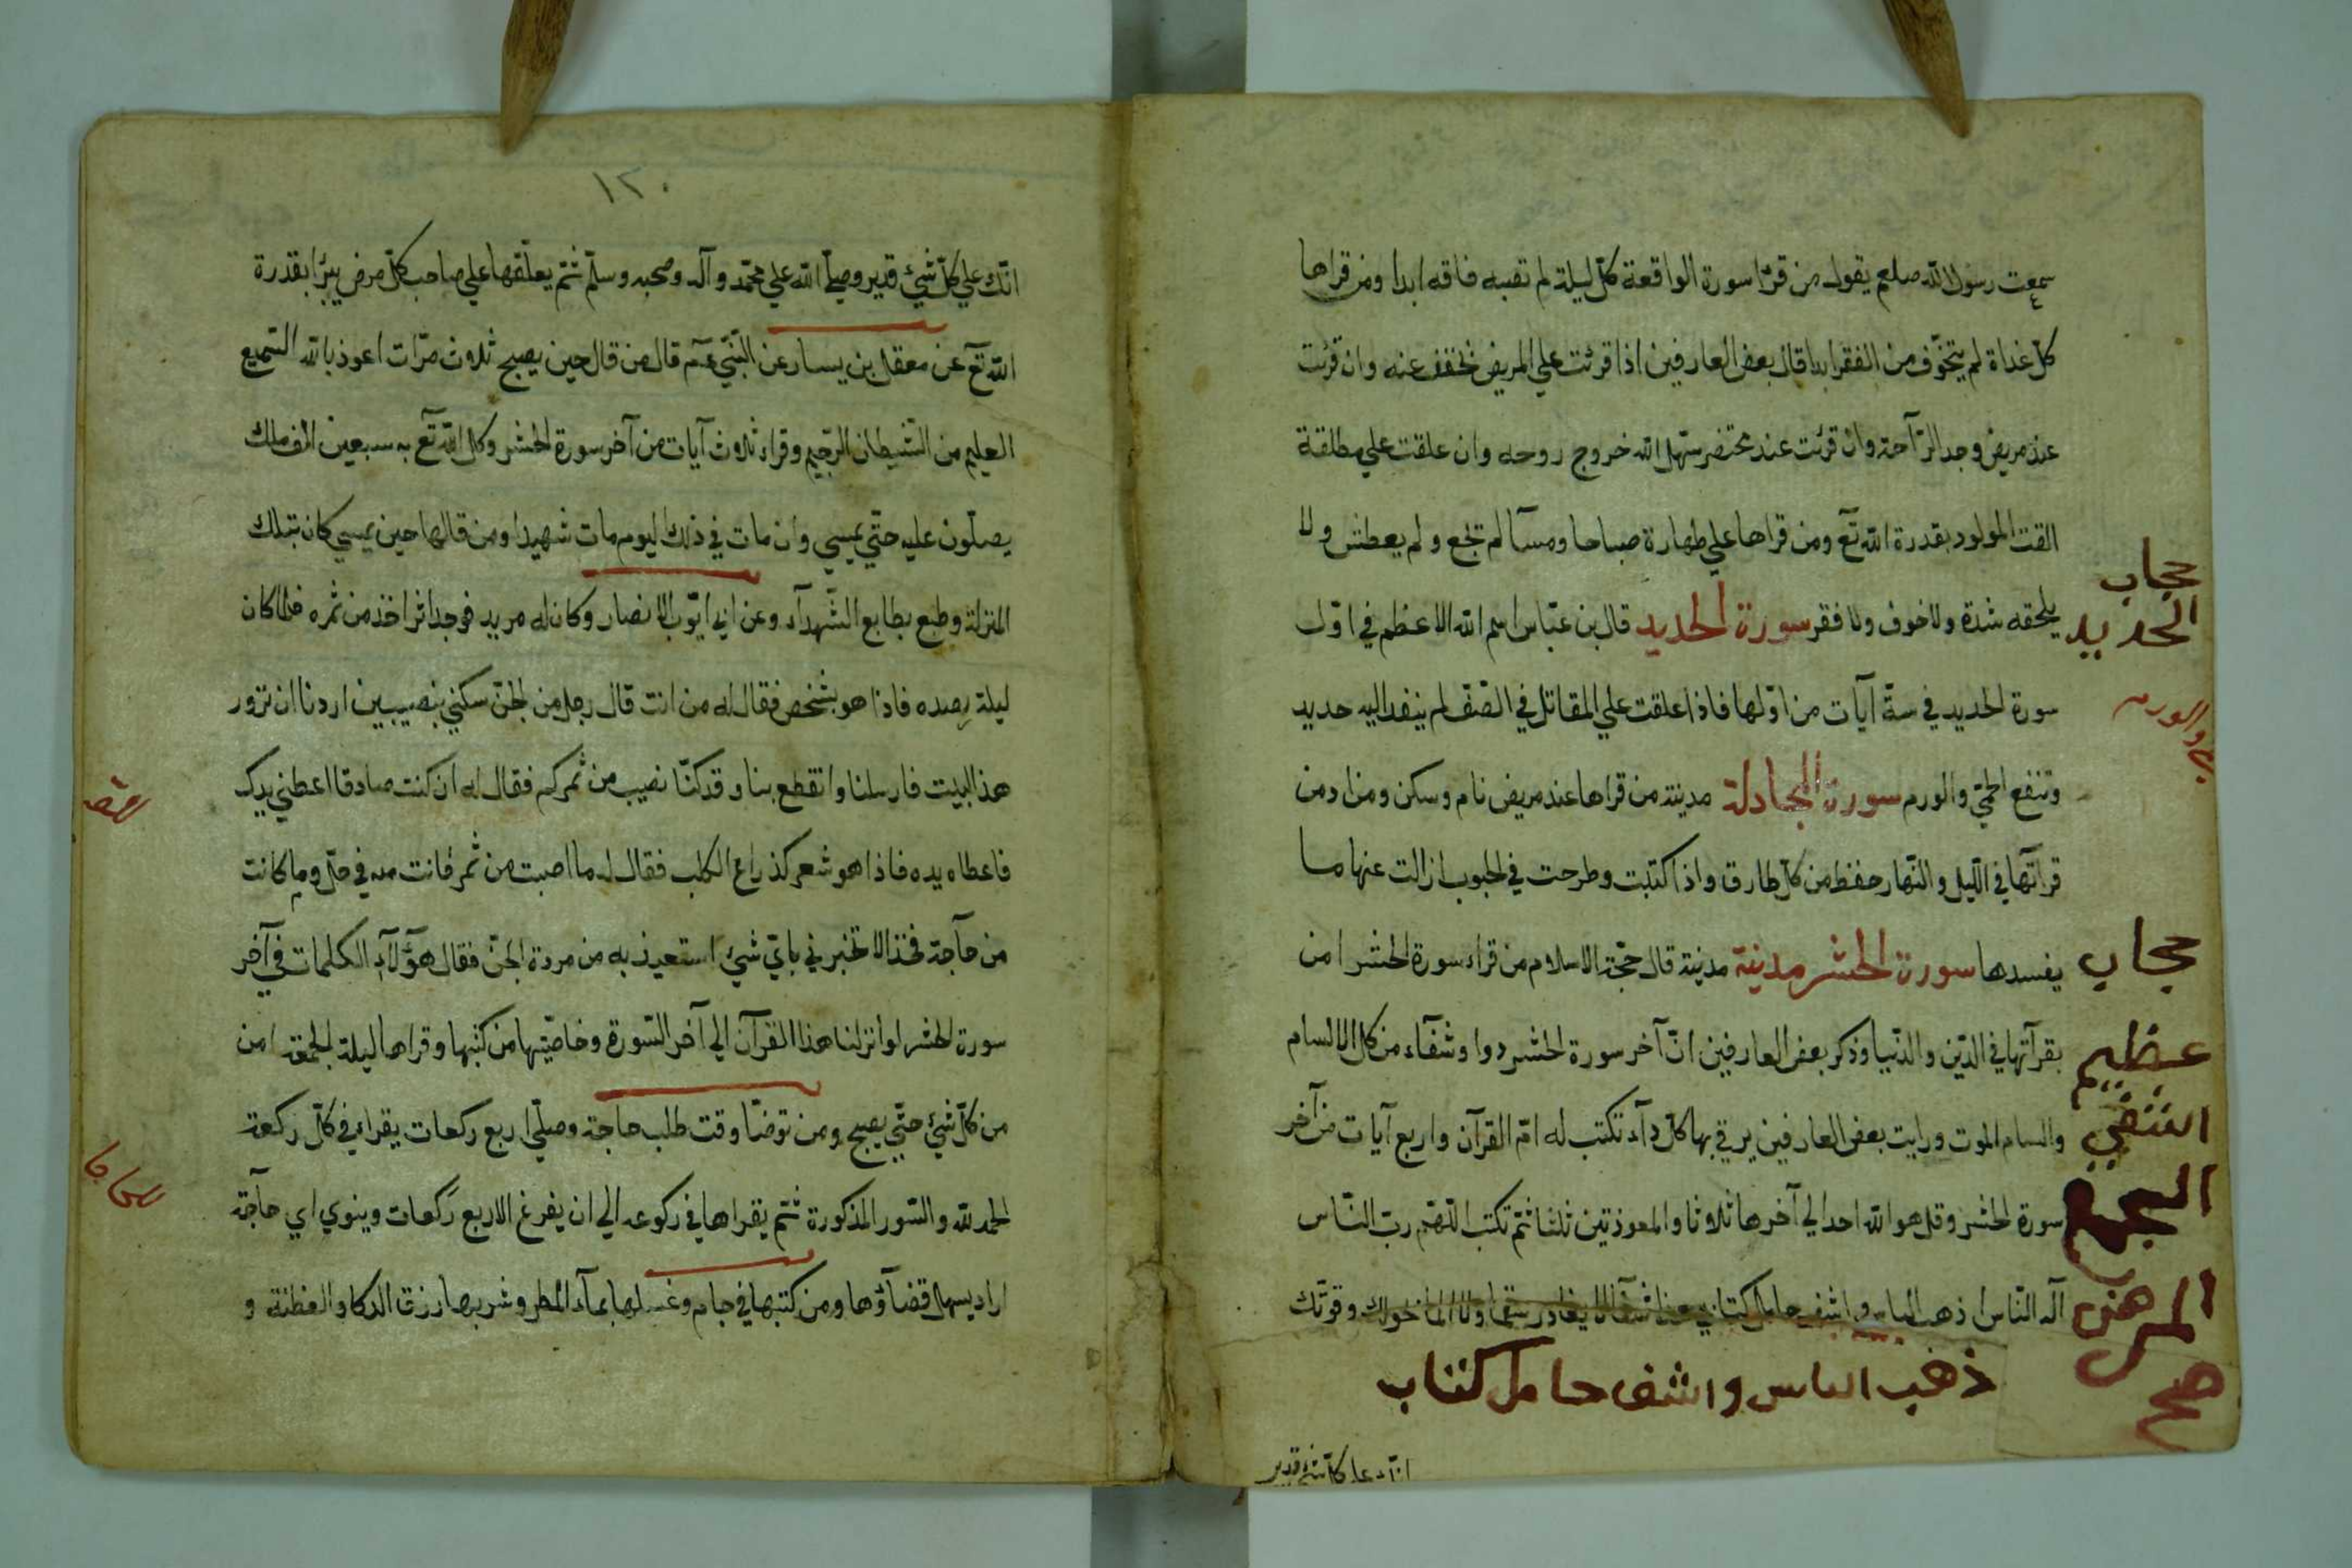 سمعت رسول الله صلعم يقول من قرا سورة الواقعة كل ليلة لم تصبه فاقه ابدا ومن قراها
كل غداة لم يتخوف من الفقر ابدا قال بعض العارفين اذا قرئت علي المريض تخفف عنه وان قرئت
عند مريض وجد الرآحة وان قرئت عند محتضر سهل الله خروج روحه وان علقت علي مطلقة
القت المولود بقدرة الله تع ومن قراها علي طهارة صباحا ومسآ لم تجع ولم يعطش ولا
يلحقه شدة ولا خوف ولا فقر سورة الحديد قال بن عباس اسم الله الاعظم في اول
سورة الحديد في ستة آيات من اولها فاذا علقت علي المقاتل في الصف لم ينفد اليه حديد
وتنفع الحمي والورم سورة المجادلة مدينة من قراها عند مريض نام وسكن ومن ادمن
قرآتها في الليل والنهار حفظ من كل طارق واذا كتبت وطرحت في الحبوب ازالت عنها ما
يفسدها سورة الحشر مدينة مدينة قال حجة الاسلام من قراء سورة الحشر امن
بقرآتها في الدين والدنيا وذكر بعض العارفين ان آخر سورة الحشر دوا وشفآء من كل الا السام
والسام الموت ورايت بعض العارفين يرقي بها كل دآء تكتب له ام القرآن واربع آيات من آخر
سورة الحشر وقل هو الله احد الي آخرها ثلاوثا والمعوذتين ثلثا ثم تكتب اللهم رب الناس
آله الناس اذهب الباس واشف حامل كتابي هذا شفآ لا يغادر سقما ولا الما بحولك وقوتك
ذهب الباس واشف حامل كتاب
انك علي كل شئ قدير
حجاب
الحديد
والورم
حجاب
عظيم
لجميع
المرض
صح
١٢٠
انك علي كل شئ قدير وصلي الله علي محمد وآله وصحبه وسلم ثم يعلقها علي صاحب كل مرض يبرا بقدرة
الله تع عن معقل بن يسار عن النبي عم قال من قال حين يصبح ثلاوث مرات اعوذ بالله السميع
العليم من الشيطان الرجيم وقراء ثلاوث آيات من آخر سورة الحشر وكل الله تع به سبعين الف ملك
يصلون عليه حتي يمسي وان مات في ذلك اليوم مات شهيدا ومن قالها حين يمسي كان بتلك
المنزلة وطبع بطابع الشهدآء وعن ابي ايوب الانصار وكان له مربد فوجد اثر اخذ من ثمره فلما كان
ليلة رصده فاذا هو بشخص فقال له من انت قال رجل من الجن سكني بنصيبين اردنا ان نزور
هذا البيت فارسلنا وانقطع بنا وقد كنا نصيب من ثمركم فقال له ان كنت صادقا اعطني يدك
فاعطاه يده فاذا هو شعر كذراع الكلب فقال له ما اصبت من ثمر فانت منه في حل وما كانت
من حآجة فخذ الا تخبرني باي شئ استعيذ به من مردة الجن فقال هؤلآء الكلمات في آخر
سورة الحشر لو انزلنا هذا القرآن الي آخر السورة وخاصيتها من كتبها وقراها ليلة الجمعة امن
من كل شئ حتي يصبح ومن توضا وقت طلب حاجة وصلي اربع ركعات يقراء في كل ركعة
الحمد لله والسور المذكورة ثم يقراها في ركوعه الي ان يفرغ الاربع ركعات وينوي اي حآجة
اراد يسهل قضآؤها ومن كتبها في جام وغسلها بمآء المطر وشربها رزق الدكا والفطنة و